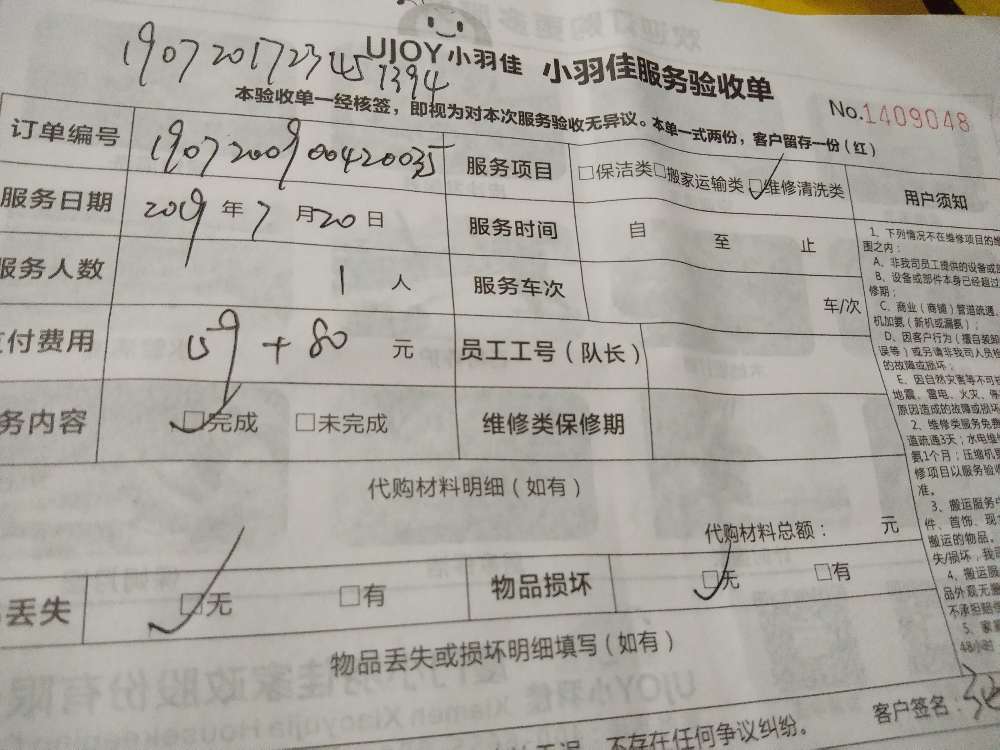 UJOY小羽佳 小羽佳服务验收单
190720172345
7394
No.1409048
本验收单一经核签，即视为对本次服务验收无异议。本单一式两份，客户留存一份（红）
订单编号 1907200900420035 服务项目 □保洁类□搬家运输类□维修清洗类 用户须知
服务日期 2019年7月20日 服务时间 自 至 止
服务人数 1人 服务车次 车/次
付费用 159+80 元 员工工号（队长）
务内容 □完成 □未完成 维修类保修期
代购材料明细（如有）
代购材料总额： 元
丢失 □无 □有 物品损坏 □无 □有
物品丢失或损坏明细填写（如有）
客户签名：
不存在任何争议纠纷。
1、下列情况不在维修项目的维
围之内：
A、非我司员工提供的设备或
B、设备或部件本身已经超过
修期；
C、商业（商铺）管道疏通、
机加氨（新机或漏氨）；
D、因客户行为（擅自装卸
误等）或另请非我司人员
的故障或损坏；
E、因自然灾害等不可
地震、雷电、火灾、停
原因造成的故障或损坏
2、维修类服务免费
道疏通3天；水电维
氨1个月；压缩机
修项目以服务验收
准。
3、搬运服务
件、首饰、现
搬运的物品。
失/损坏，我
4、搬运服
品外观无
不承担赔
5、家
48小时